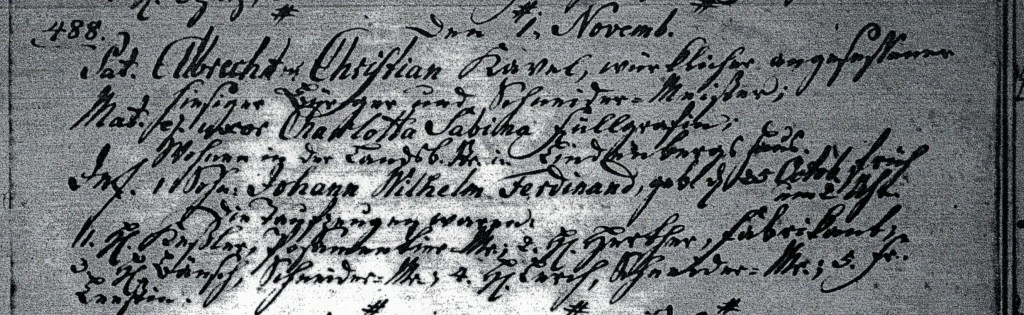 488. Den 1. Novemb.
Pat. Albrecht Christian Kavel, würklicher angesessener
hiesiger Bürger und Schneider-Meister;
Mat. ej. uxor Charlotta Sabina Füllgrafin;
Wohnen in der Landsb. Str. in Lindenbergs Haus.
Inf. 1 Sohn: Johann Wilhelm Ferdinand, geb. d. 25 Octob. früh
um 2 Uhr.
Die Taufzeugen waren:
1. H. Keßler, Posamentier-Mr; 2. H. Günther, Fabrikant;
3. H. Bänsch, Schneider-Mr; 4. H. Lersch, Schneider-Mr; 5. Fr.